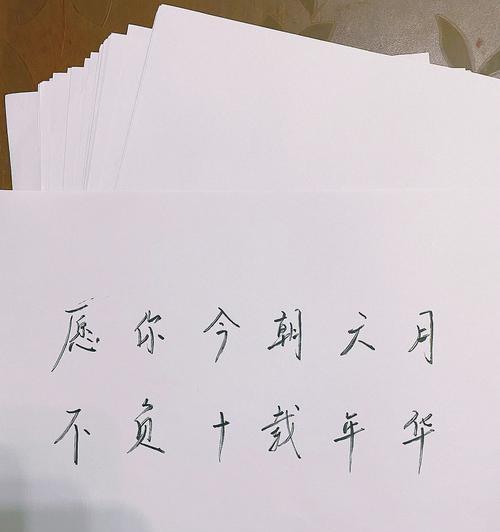 愿你今朝六月
不负十载年华